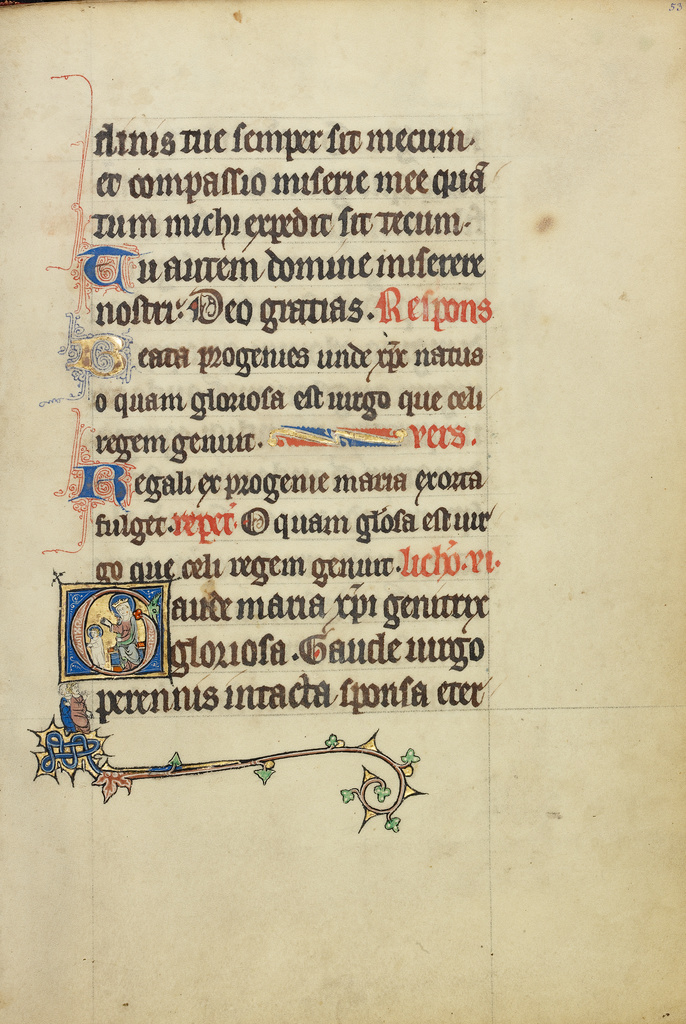 53
dinis tue semper sit mecum.
et compassio miserie mee quā
tum michi expedit sit tecum.
Tu autem domine miserere
nostri. Deo gratias. Respons
Beata progenies unde xp̄c natus
o quam gloriosa est uirgo que celi
regem genuit. vers.
Regali ex progenie maria exorta
fulget. repet. O quam gl̄osa est uir
go que celi regem genuit. licho. vi.
Gaude maria xp̄i genitrix
gloriosa. Gaude uirgo
perennis intacta sponsa eter